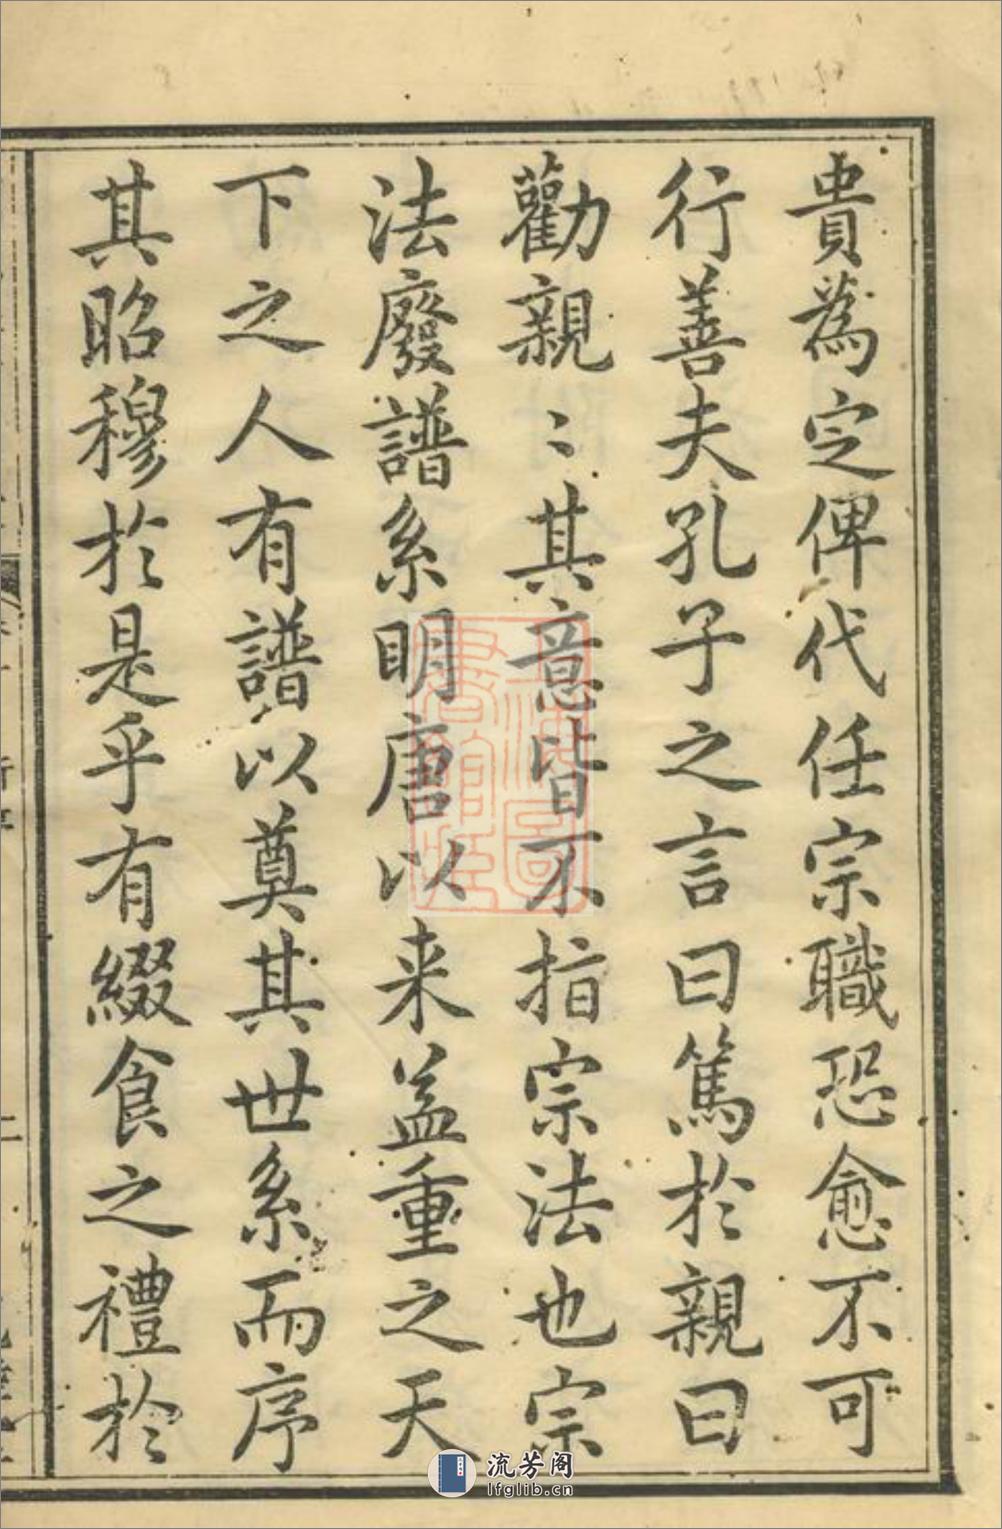 貴為定俾代任宗職恐愈不可
行善夫孔子之言曰篤於親曰
勸親〻其意皆不指宗法也宗
法廢譜系明唐以来益重之天
下之人有譜以奠其世系而序
其昭穆於是乎有綴食之禮於
流芳阁
lfglib.cn